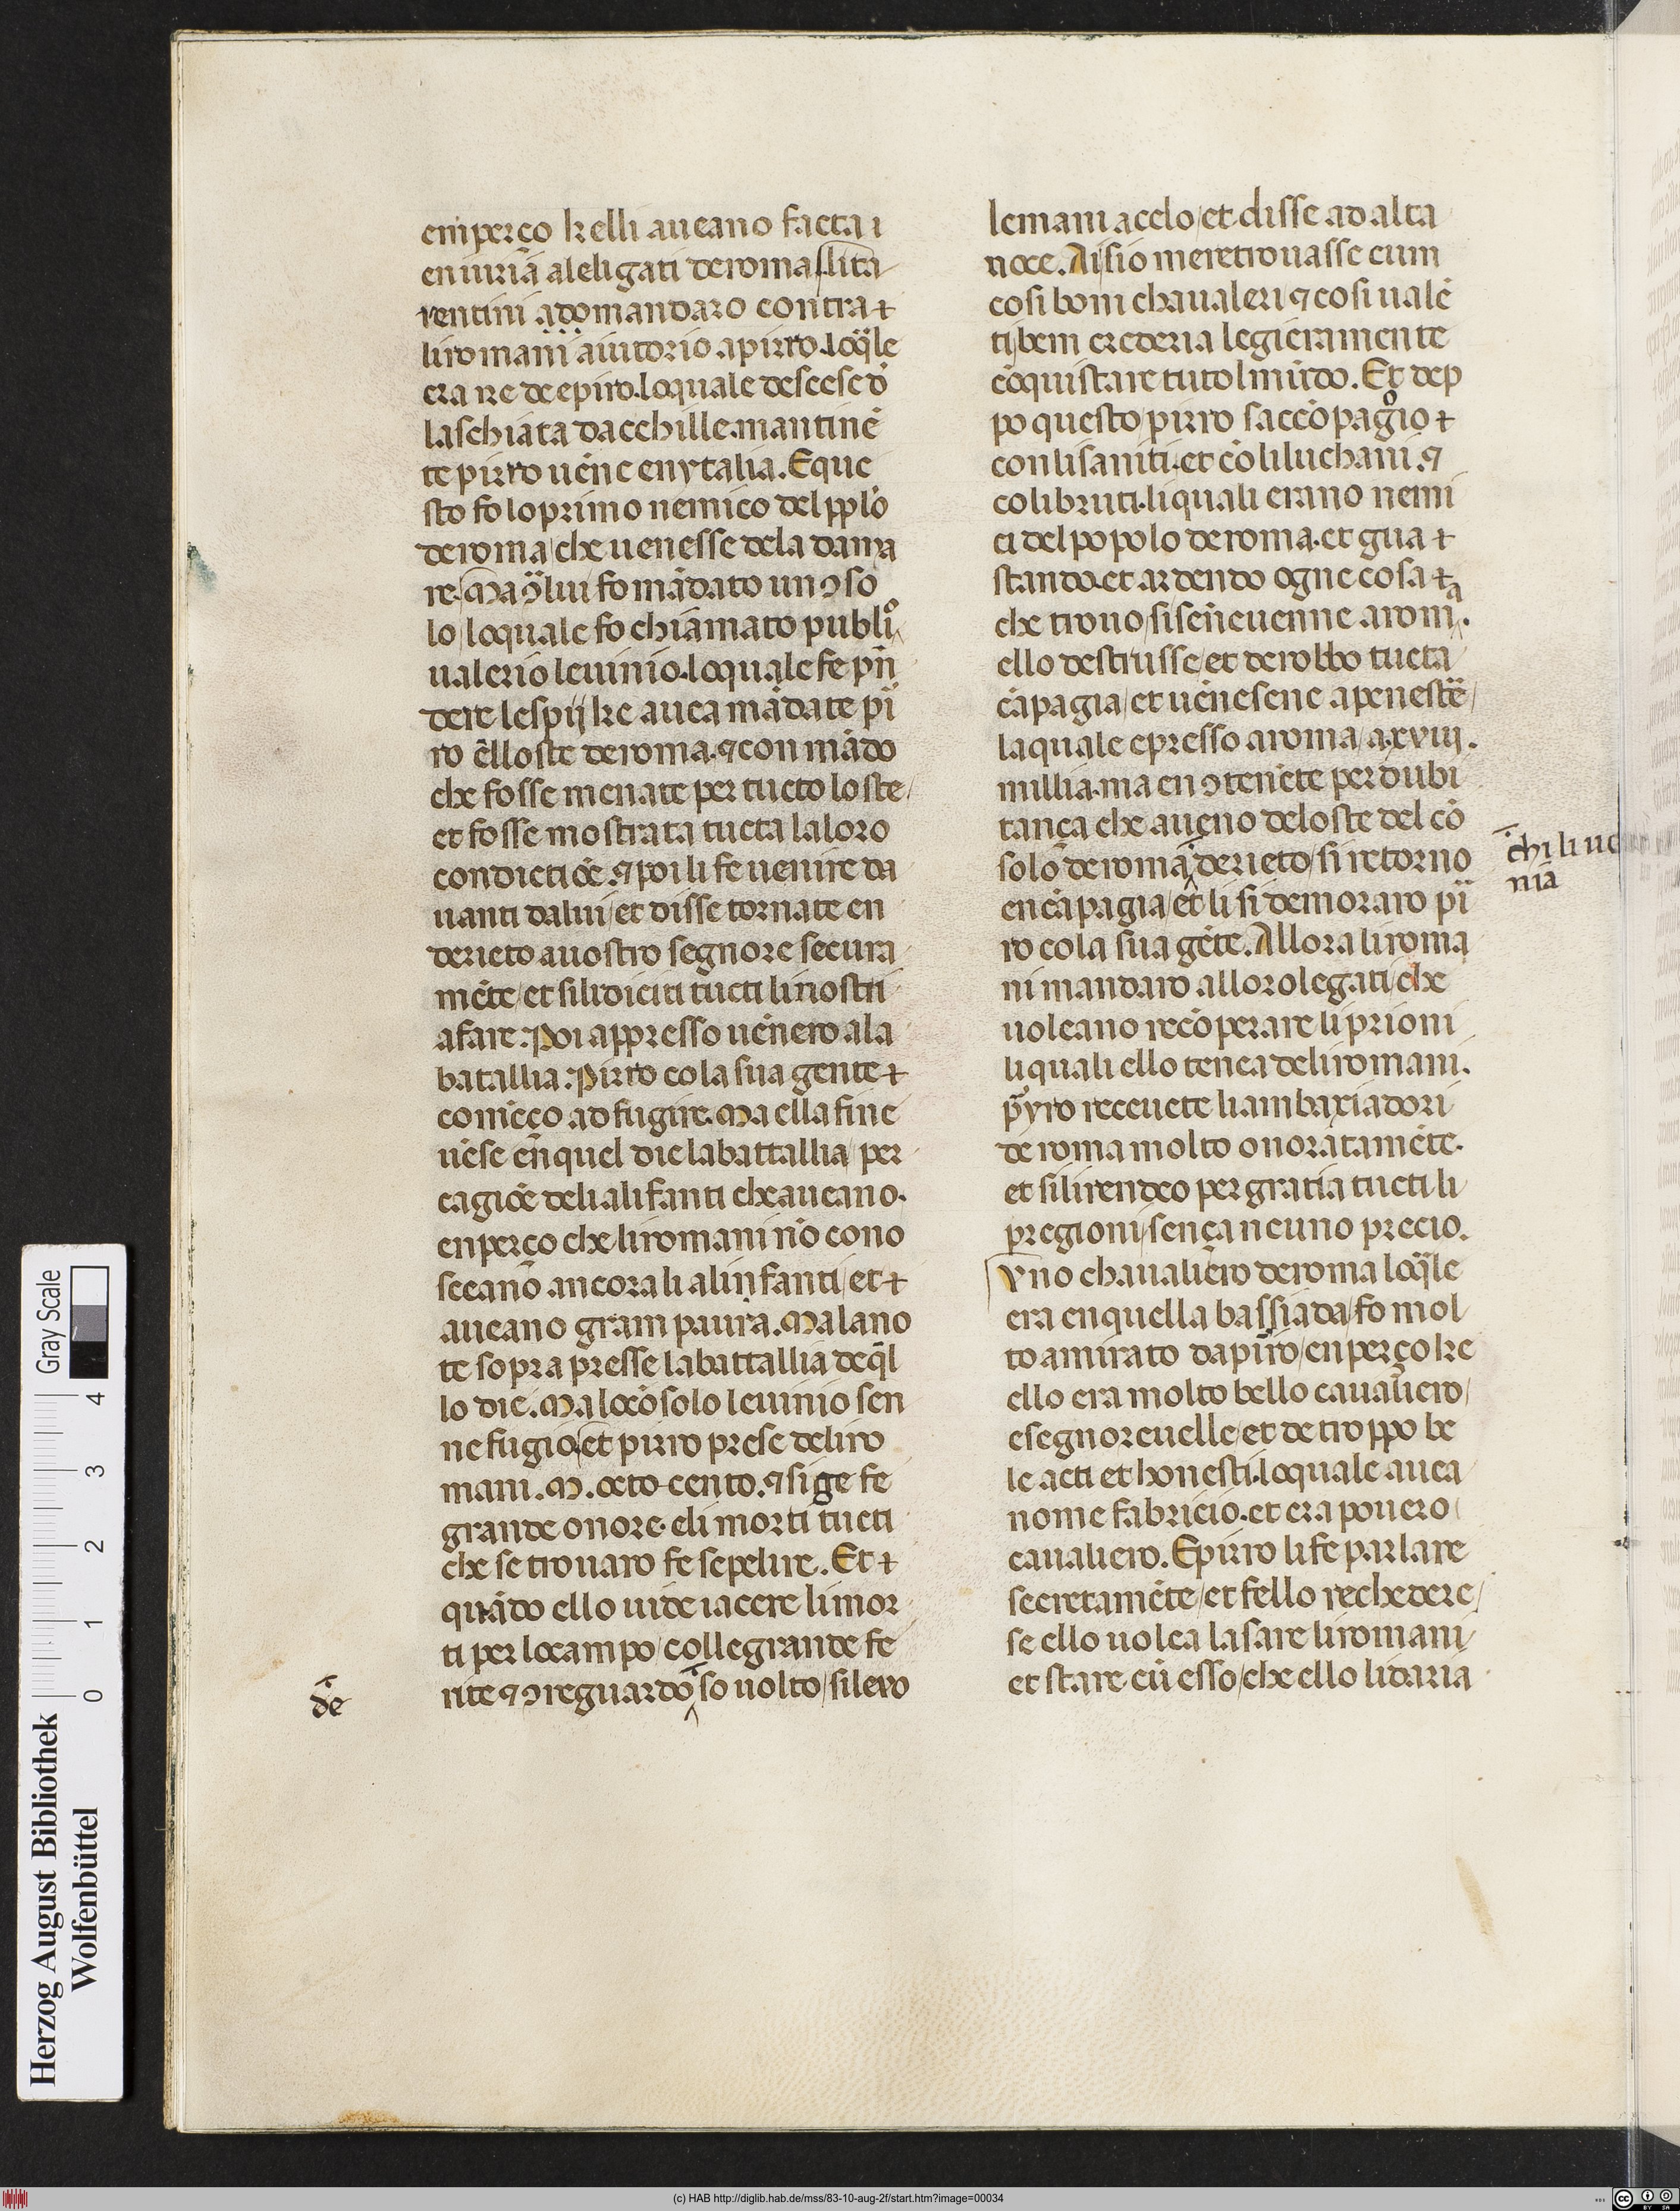 emperço kelli aueano facta i
eniuriā aleligati deroma/lita
rentini adomandaro contra
liromani aiutorio apirro.loq̈le
era re deepiro.loquale descese d̄
laschiata dacchille.mantinē
te pirro uēne enytalia. Eque
sto fo loprimo nemico del pplo
deroma/che uenesse dela dama
re. Maꝯlui fo mādato un ꝯso
lo/loquale fo chiamato publio
ualerio leuinio.loquale fe pn̄
dere lespij ke auea mādate pi
ro ēlloste deroma.⁊con mādo
che fosse menate per tucto loste/
et fosse mostrata tucta laloro
condictiōe.⁊poi li fe uenire da
uanti dalui/et disse tornate en
derieto auostro segnore secura
mēte/et silidiciti tucti linostri
afare. Poi appresso uēnero ala
batallia. Pirro cola sua gente
comēço ad fugire. Ma ella fine
uēse en quel die labattallia/per
cagiōe deli alifanti cheaueano.
enperço che liromani nō cono
sceano ancora li alinfanti/et
aueano gram paura. Malano
te sopra presse labattallia deq̄l
lo die. Ma locōsolo leuinio sen
ne fugio/et pirro prese deliro
mani. M. octo cento.⁊si ge fe
grande onore. eli morti tucti
che se trouaro fe sepelire. Et
quādo ello uide iacere li mor
ti per locampo/collegrande fe
rite ⁊ ꝯreguardō so uolto/sileuo
de
lemani acelo/et disse ad alta
uoce. Aisio meretrouasse cum
cosi boni chaualeri ⁊ cosi ualē
ti/bem crederia legieramente
cōquistare tuto l mūdo. Et dep
po questo/pirro saccōpagio
con lisaniti.et cō liluchani.⁊
colibruti.liquali erano nemi
ci del popolo deroma.et gua
stando.et ardendo ogne cosa
che trouo/sisen̄euenne aroma.
ello destrusse/et derobbo tucta
cāpagia/et uēnesene apeneste/
laquale epresso aroma/axviij.
millia.ma en ꝯtenēte per dubi
tança che aueno deloste del cō
solo deroma derieto/si retorno
chi li ue
nia
encāpagia/et li si demoraro pi
ro cola sua gēte. Allora liroma
ni mandaro allorolegati/che
uoleano recōperare li prioni
liquali ello tenea deliromani.
pyro receuete liambaxiadori
de roma molto onoratamēte.
et silirendeo per gratia tucti li
pregioni/sença neuno precio.
Vno chaualiero deroma loq̈le
era enquella bassiada/fo mol
to amirato dapirro/enperço ke
ello era molto bello caualiero/
esegnoreuelle/et de troppo be
le acti et honesti.loquale auea
nome fabricio.et era pouero
caualiero. Epirro li fe parlare
secretamēte/et fello rechedere/
se ello uolea lasare liromani/
et stare cū esso/che ello lidaria
Herzog August Bibliothek
Wolfenbüttel
Gray Scale
0 1 2 3 4
(c) HAB http://diglib.hab.de/mss/83-10-aug-2f/start.htm?image=00034